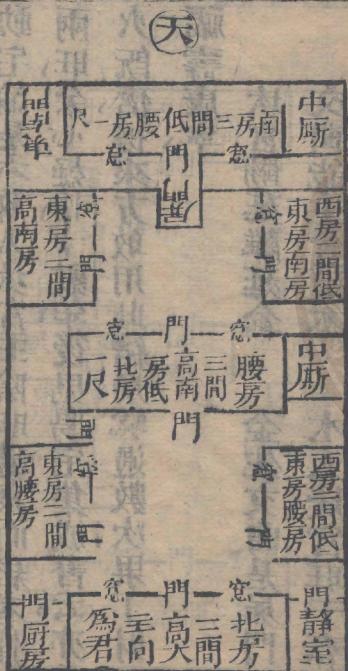 天
中厠
南房三間低腰房一尺
窓
門
窓
西房二間低
東房南房
窓
門
東房二間
高南房
窓
門
中厠
窓
門
窓
腰房
三間
高南
房低
北房
一尺
門
門
西房二間低
東房腰房
窓
門
東房二間
高腰房
窓
門
門靜室
窓
門
窓
北房
三間
高大
主向
爲君
門厨房